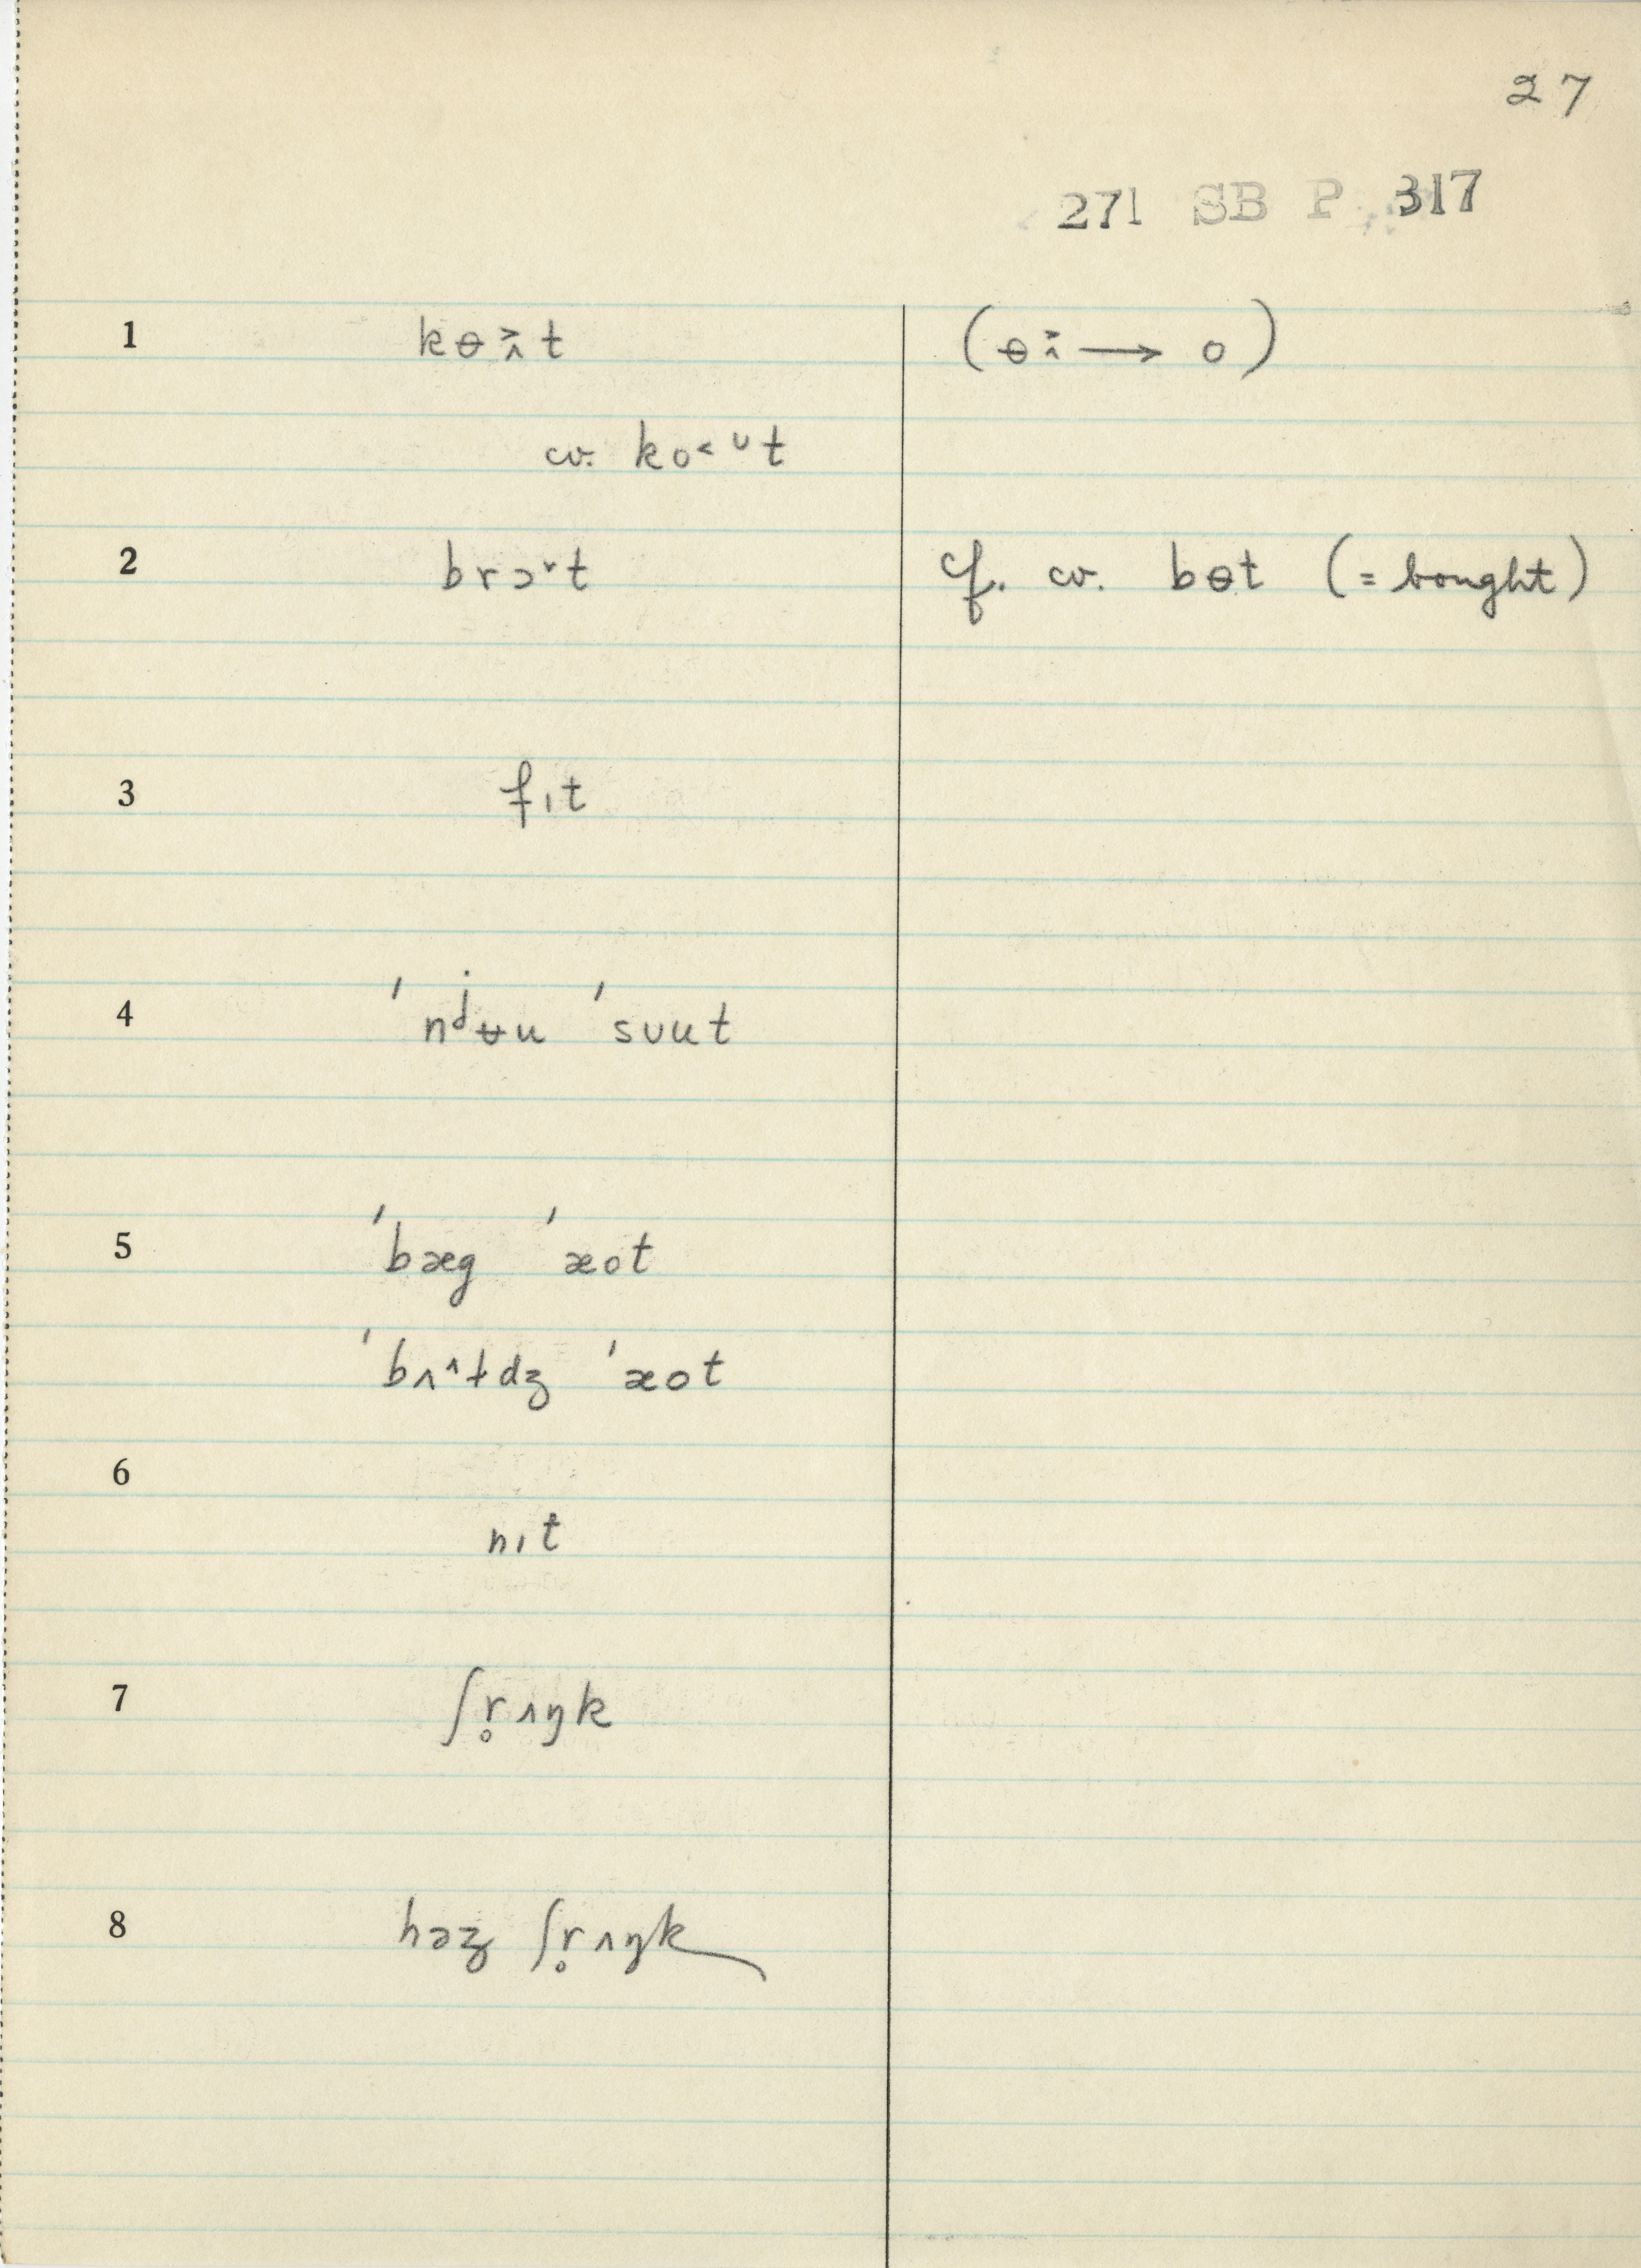 27
271 SB P 317
1 kɵ^>‸t (ɵ^>‸ → o)
cv. ko˂ᶷt
2 brɔ˅t cf. cv. bɵt (= bought)
3 fıt
4 ˈnʲʉu ˈsᴜut
5 ˈbæg ˈæot
ˈbʌ^ɫdʒ ˈæot
6
nıt
7 ʃr̥ʌŋk
8 həz ʃr̥ʌŋk